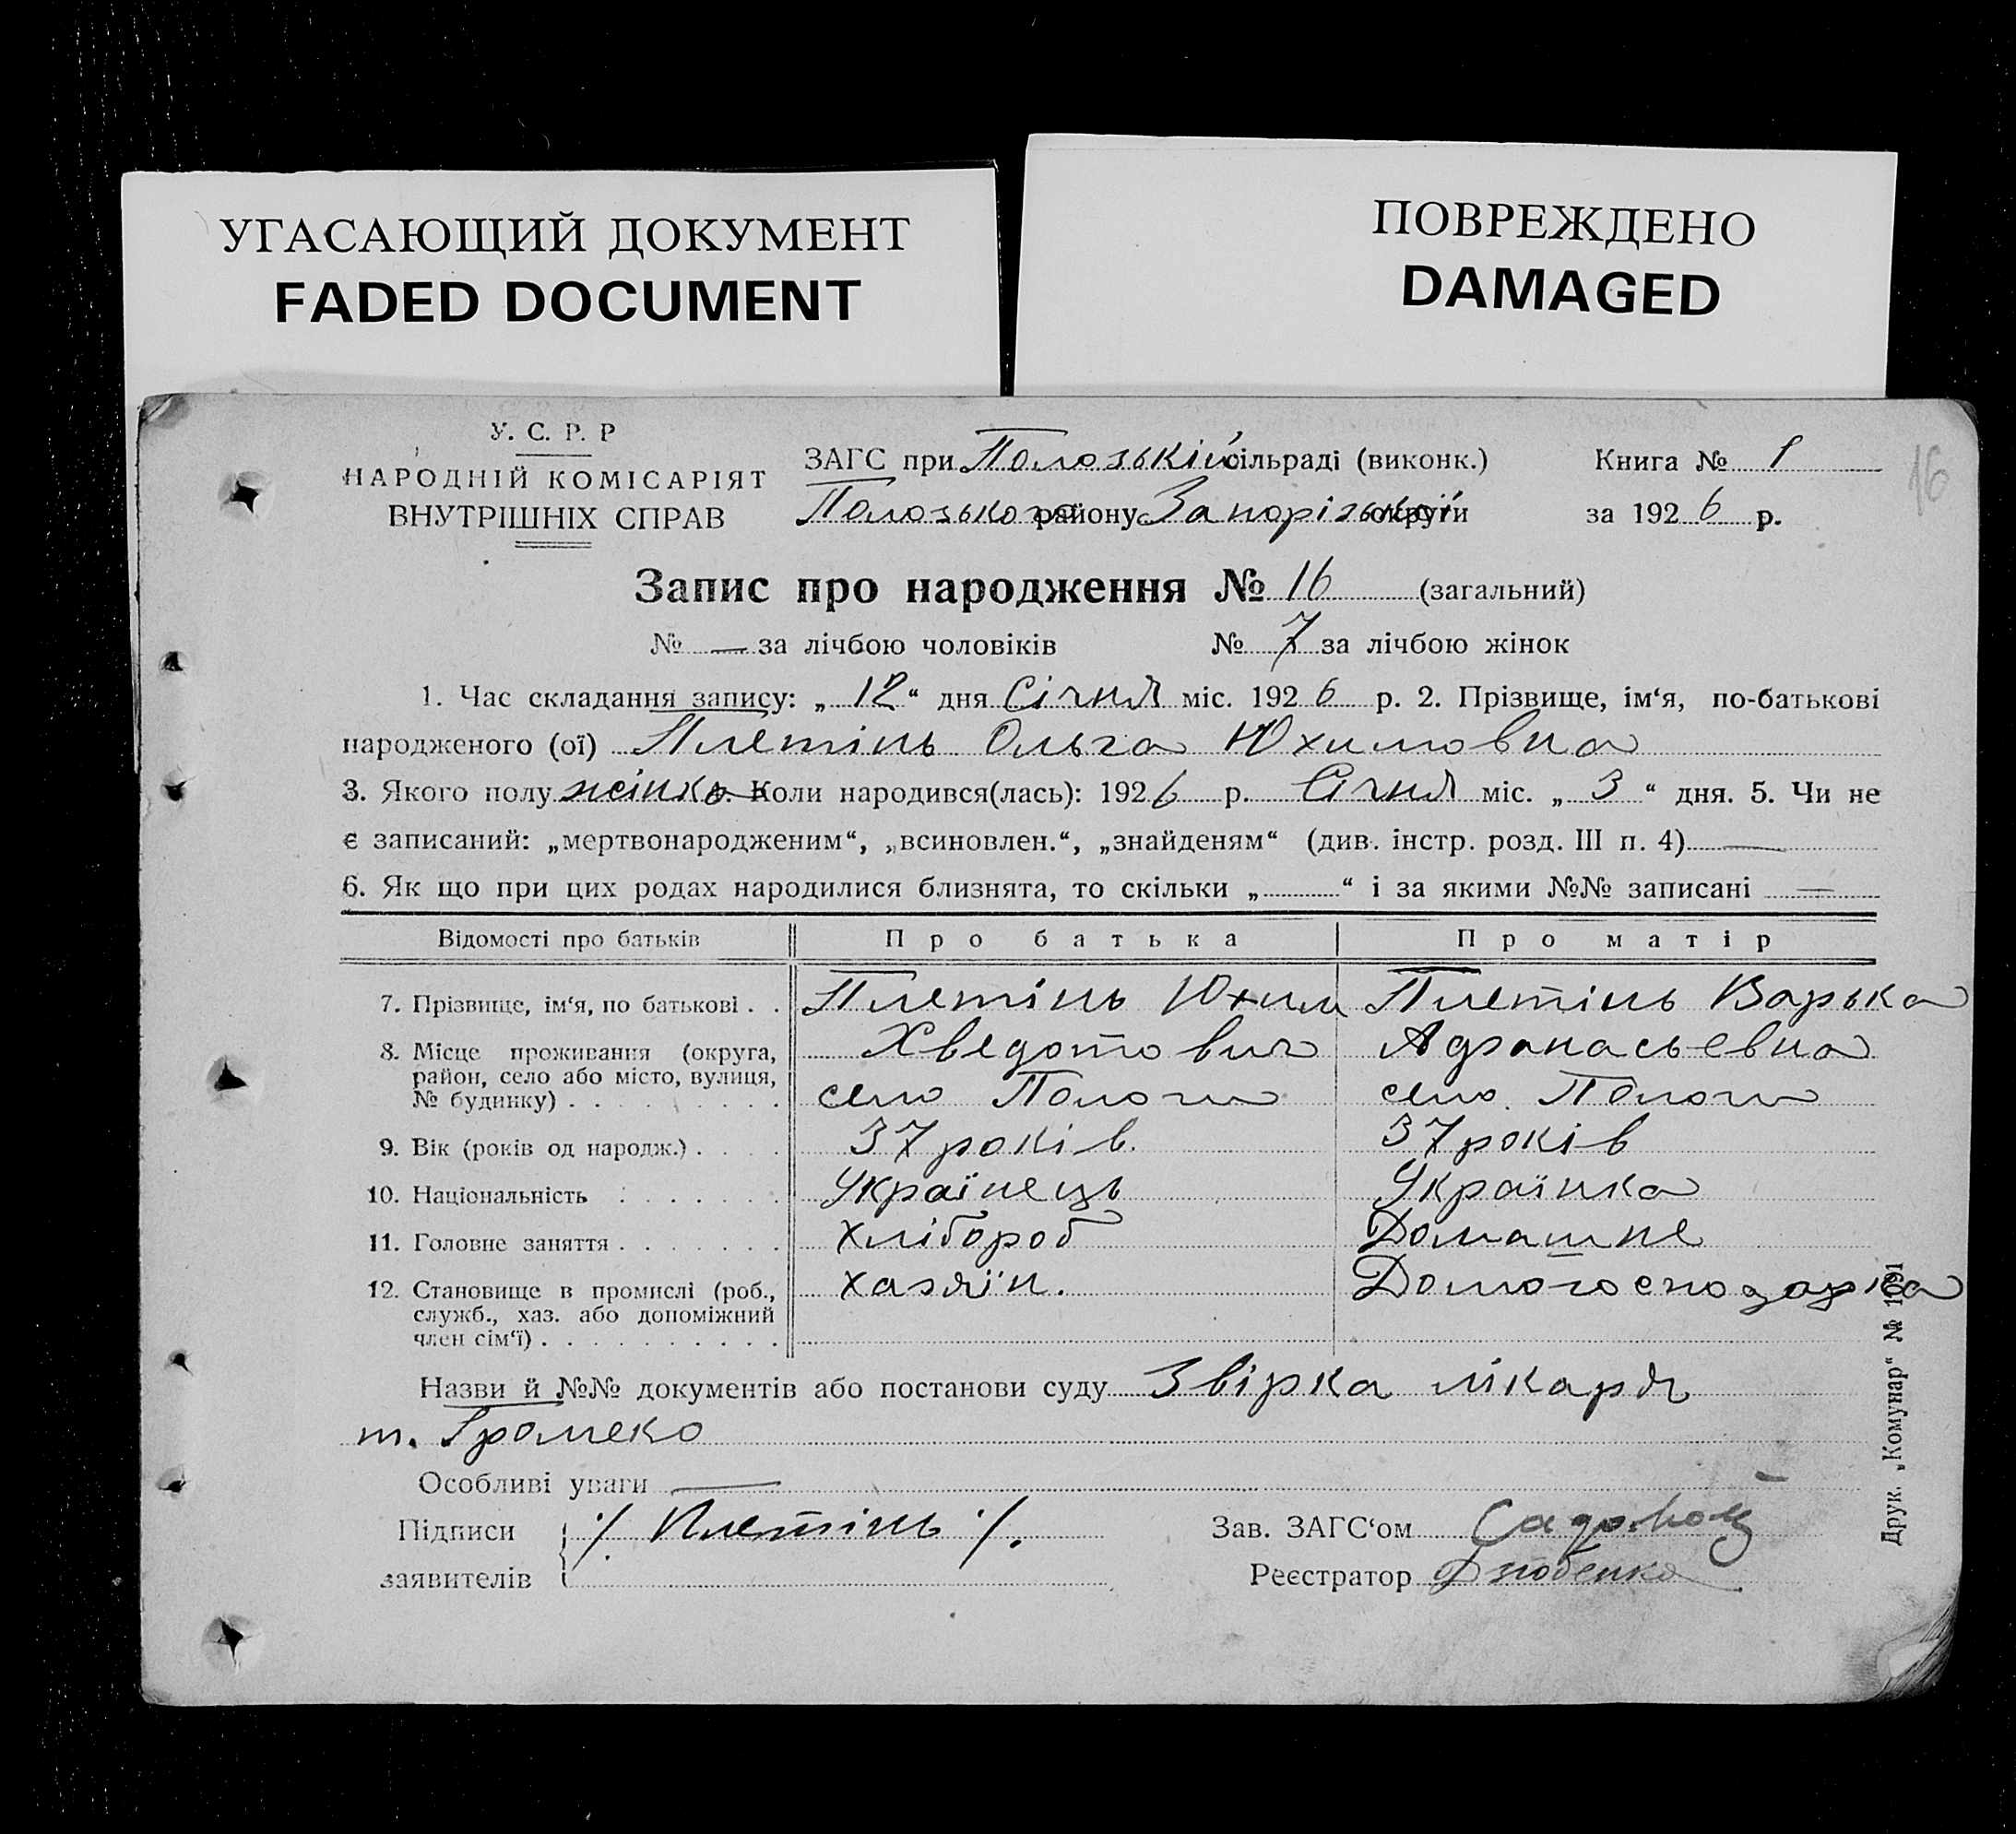 УГАСАЮЩИЙ ДОКУМЕНТ
FADED DOCUMENT
ПОВРЕЖДЕНО
DAMAGED
У. С. Р. Р
НАРОДНІЙ КОМІСАРІЯТ
ВНУТРІШНІХ СПРАВ
ЗАГС при Полозькій сільраді (виконк.)
Полозького району Запорізької округи
Книга № 1
за 1926 р.
16
Запис про народження № 16 (загальний)
№ — за лічбою чоловіків № 7 за лічбою жінок
1. Час складання запису: „12“ дня Січня міс. 1926 р. 2. Прізвище, ім‘я, по-батькові
народженого (ої) Плетінь Ольга Юхимовна
3. Якого полу жінка. Коли народився(лась): 1926 р. Січня міс. „3“ дня. 5. Чи не
є записаний: „мертвонародженим“, „всиновлен.“, „знайденям“ (див. інстр. розд. III п. 4) —
6. Як що при цих родах народилися близнята, то скільки „ “ і за якими №№ записані —
Відомості про батьків Про батька Про матір
7. Прізвище, ім‘я, по батькові . . Плетінь Юхим Плетінь Варька
Хведотович Афанасьевна
8. Місце проживання (округа,
район, село або місто, вулиця,
№ будинку) . . . . . . . . . село Пологи село Пологи
9. Вік (років од народж.) . . . . 37 років. 37 років
10. Національність . . . . . . . Українець Українка
11. Головне заняття . . . . . . . Хлібороб Домашне
12. Становище в промислі (роб.,
служб., хаз. або допоміжний
член сім‘ї) . . . . . . . . . . хазяїн. Домогосподарка
Назви й №№ документів або постанови суду Звірка лікаря
т. Громеко
Особливі уваги —
Підписи
заявителів
/ Плетінь /.
Зав. ЗАГС‘ом
Реєстратор Дзюбенко
Друк. „Комунар“ № 1691